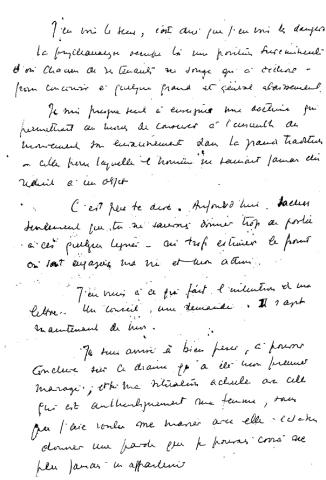 J'en vois le sens, c'est ainsi que j'en vois les dangers
la psychanalyse occupe là une position
d'où chacun de ses tenants ne songe qu'à
pour concourir à quelque grand et général abaissement.
Je suis presque seul à enseigner une doctrine qui
permettrait au moins de conserver à l'ensemble du
mouvement son enracinement dans la grande tradition
celle pour laquelle l'homme ne saurait jamais être
réduit à un objet
C'est peu te dire. Aujourd'hui. Sache
seulement que tu ne saurais donner trop de portée
à ces quelques lignes ni trop estimer le point
où sont engagées ma vie et mon action.
J'en viens à ce qui fait l'intention de ma
lettre. Un conseil, une demande. Il s'agit
maintenant de moi.
Je suis arrivé à bien penser, à pouvoir
conclure sur ce drame qu'a été mon premier
mariage, et ma situation actuelle avec celle
qui est authentiquement ma femme, sans
que j'aie voulu me marier avec elle
donner une parole que je pouvais croire ne
plus jamais m'appartenir